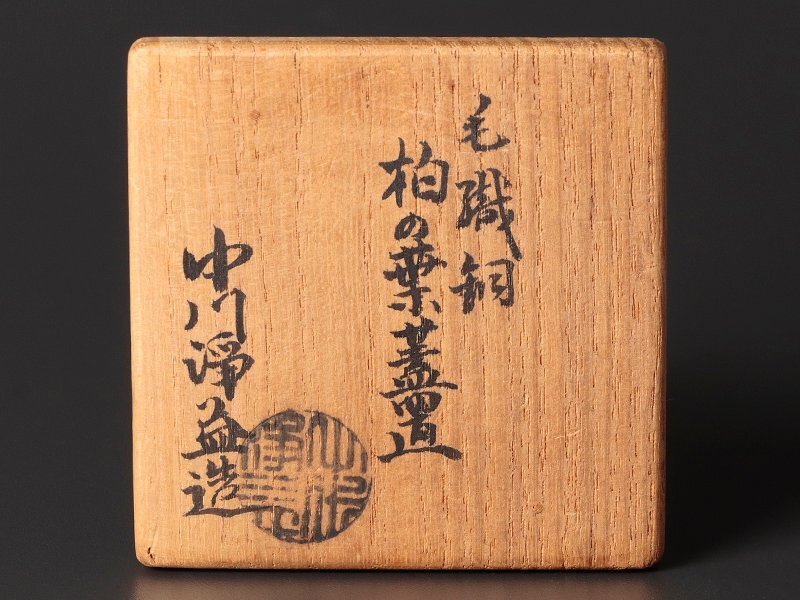 毛織銅
柏の葉蓋置
中川淨益造